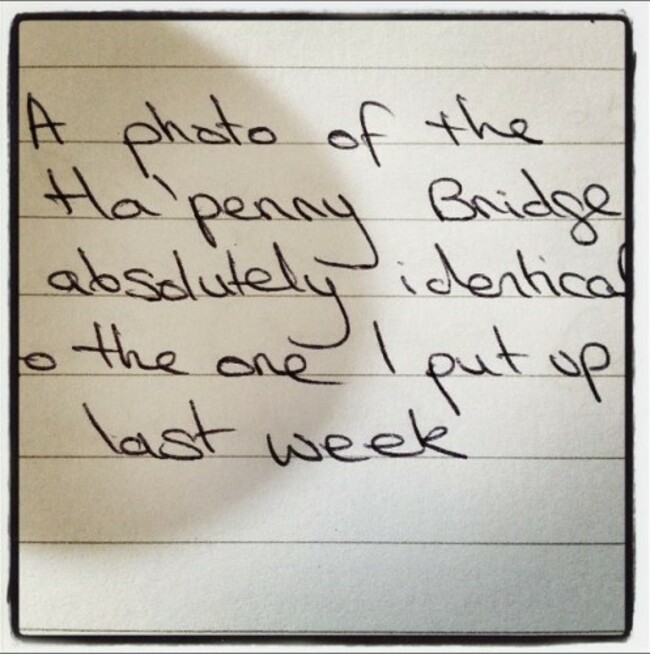 A photo of the
Ha'penny Bridge
absolutely identical
o the one I put up
last week